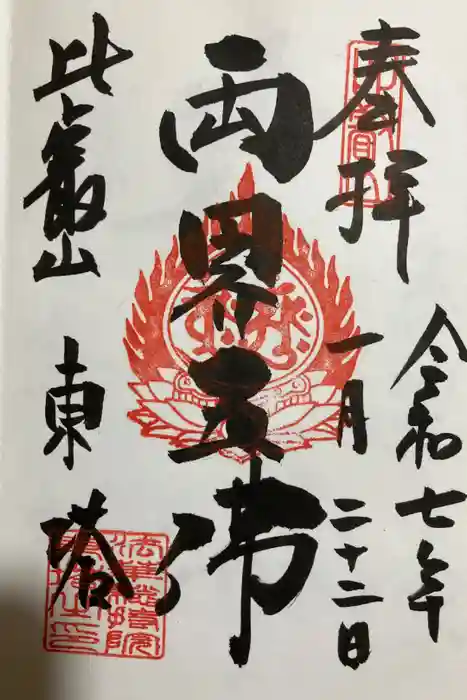 奉拝
令和七年
一月二十二日
両界五佛
比叡山
東塔